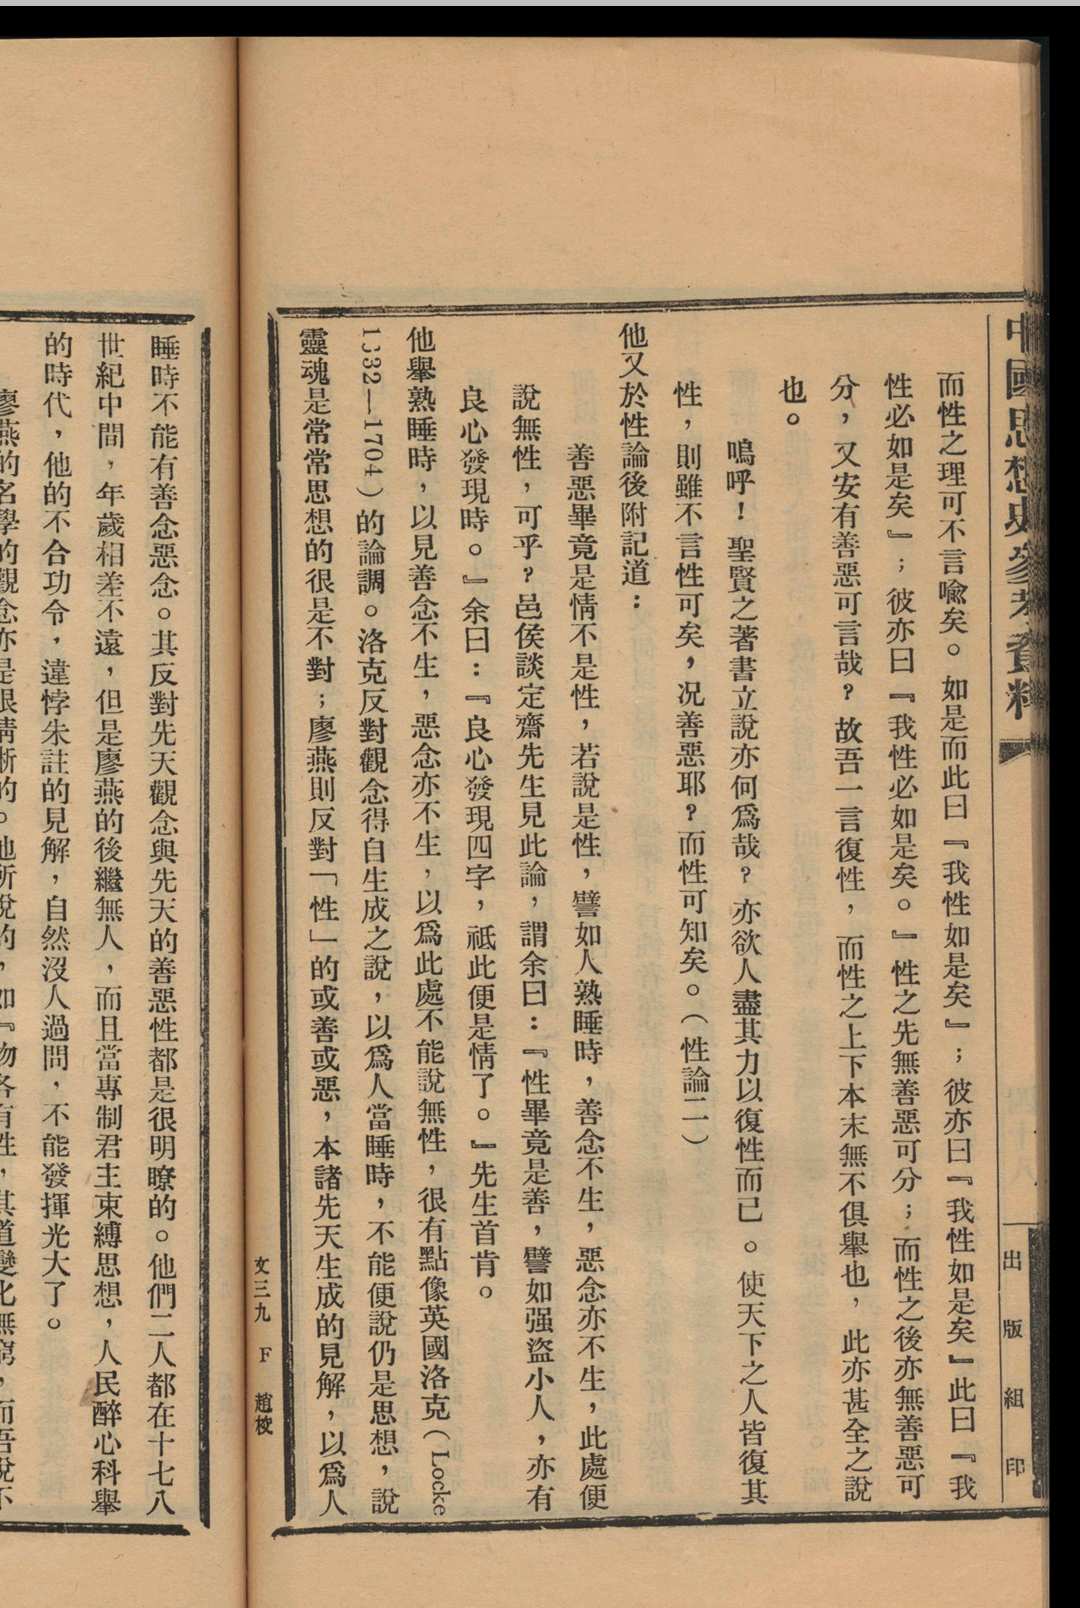 中國思想史參考資料
出版組印
而性之理可不言喩矣。如是而此曰『我性如是矣』；彼亦曰『我性如是矣』此曰『我
性必如是矣』；彼亦曰『我性必如是矣。』性之先無善惡可分；而性之後亦無善惡可
分，又安有善惡可言哉？故吾一言復性，而性之上下本末無不俱舉也，此亦甚全之說
也。
嗚呼！聖賢之著書立說亦何爲哉？亦欲人盡其力以復性而已。使天下之人皆復其
性，則雖不言性可矣，况善惡耶？而性可知矣。（性論二）
他又於性論後附記道：
善惡畢竟是情不是性，若說是性，譬如人熟睡時，善念不生，惡念亦不生，此處便
說無性，可乎？邑侯談定齋先生見此論，謂余曰：『性畢竟是善，譬如强盜小人，亦有
良心發現時。』余曰：『良心發現四字，祗此便是情了。』先生首肯。
他舉熟睡時，以見善念不生，惡念亦不生，以爲此處不能說無性，很有點像英國洛克（Locke
1332—1704）的論調。洛克反對觀念得自生成之說，以爲人當睡時，不能便說仍是思想，說
靈魂是常常思想的很是不對；廖燕則反對「性」的或善或惡，本諸先天生成的見解，以爲人
文三九 F 趙校
睡時不能有善念惡念。其反對先天觀念與先天的善惡性都是很明瞭的。他們二人都在十七八
世紀中間，年歲相差不遠，但是廖燕的後繼無人，而且當專制君主束縛思想，人民醉心科舉
的時代，他的不合功令，違悖朱註的見解，自然沒人過問，不能發揮光大了。
廖燕的名學的觀念亦是很清晰的。他所說的，如『物各有性，其道變化無窮，而吾說不